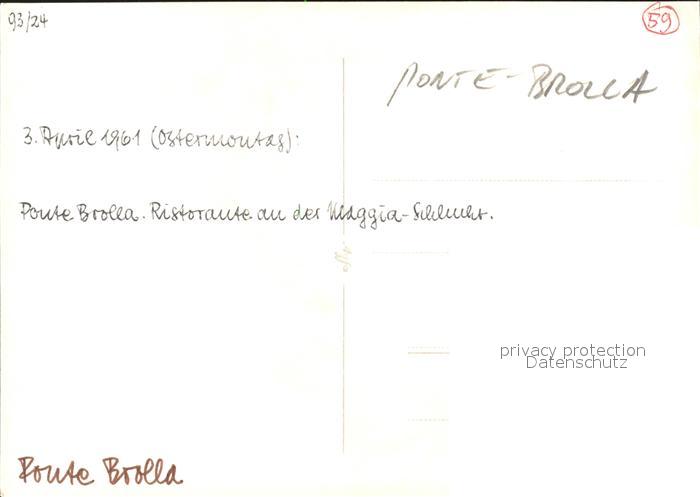 93/24
59
PONTE-BROLLA
3. April 1961 (Ostermontag):
Ponte Brolla. Ristorante an der Maggia-Schlucht.
privacy protection
Datenschutz
Ponte Brolla